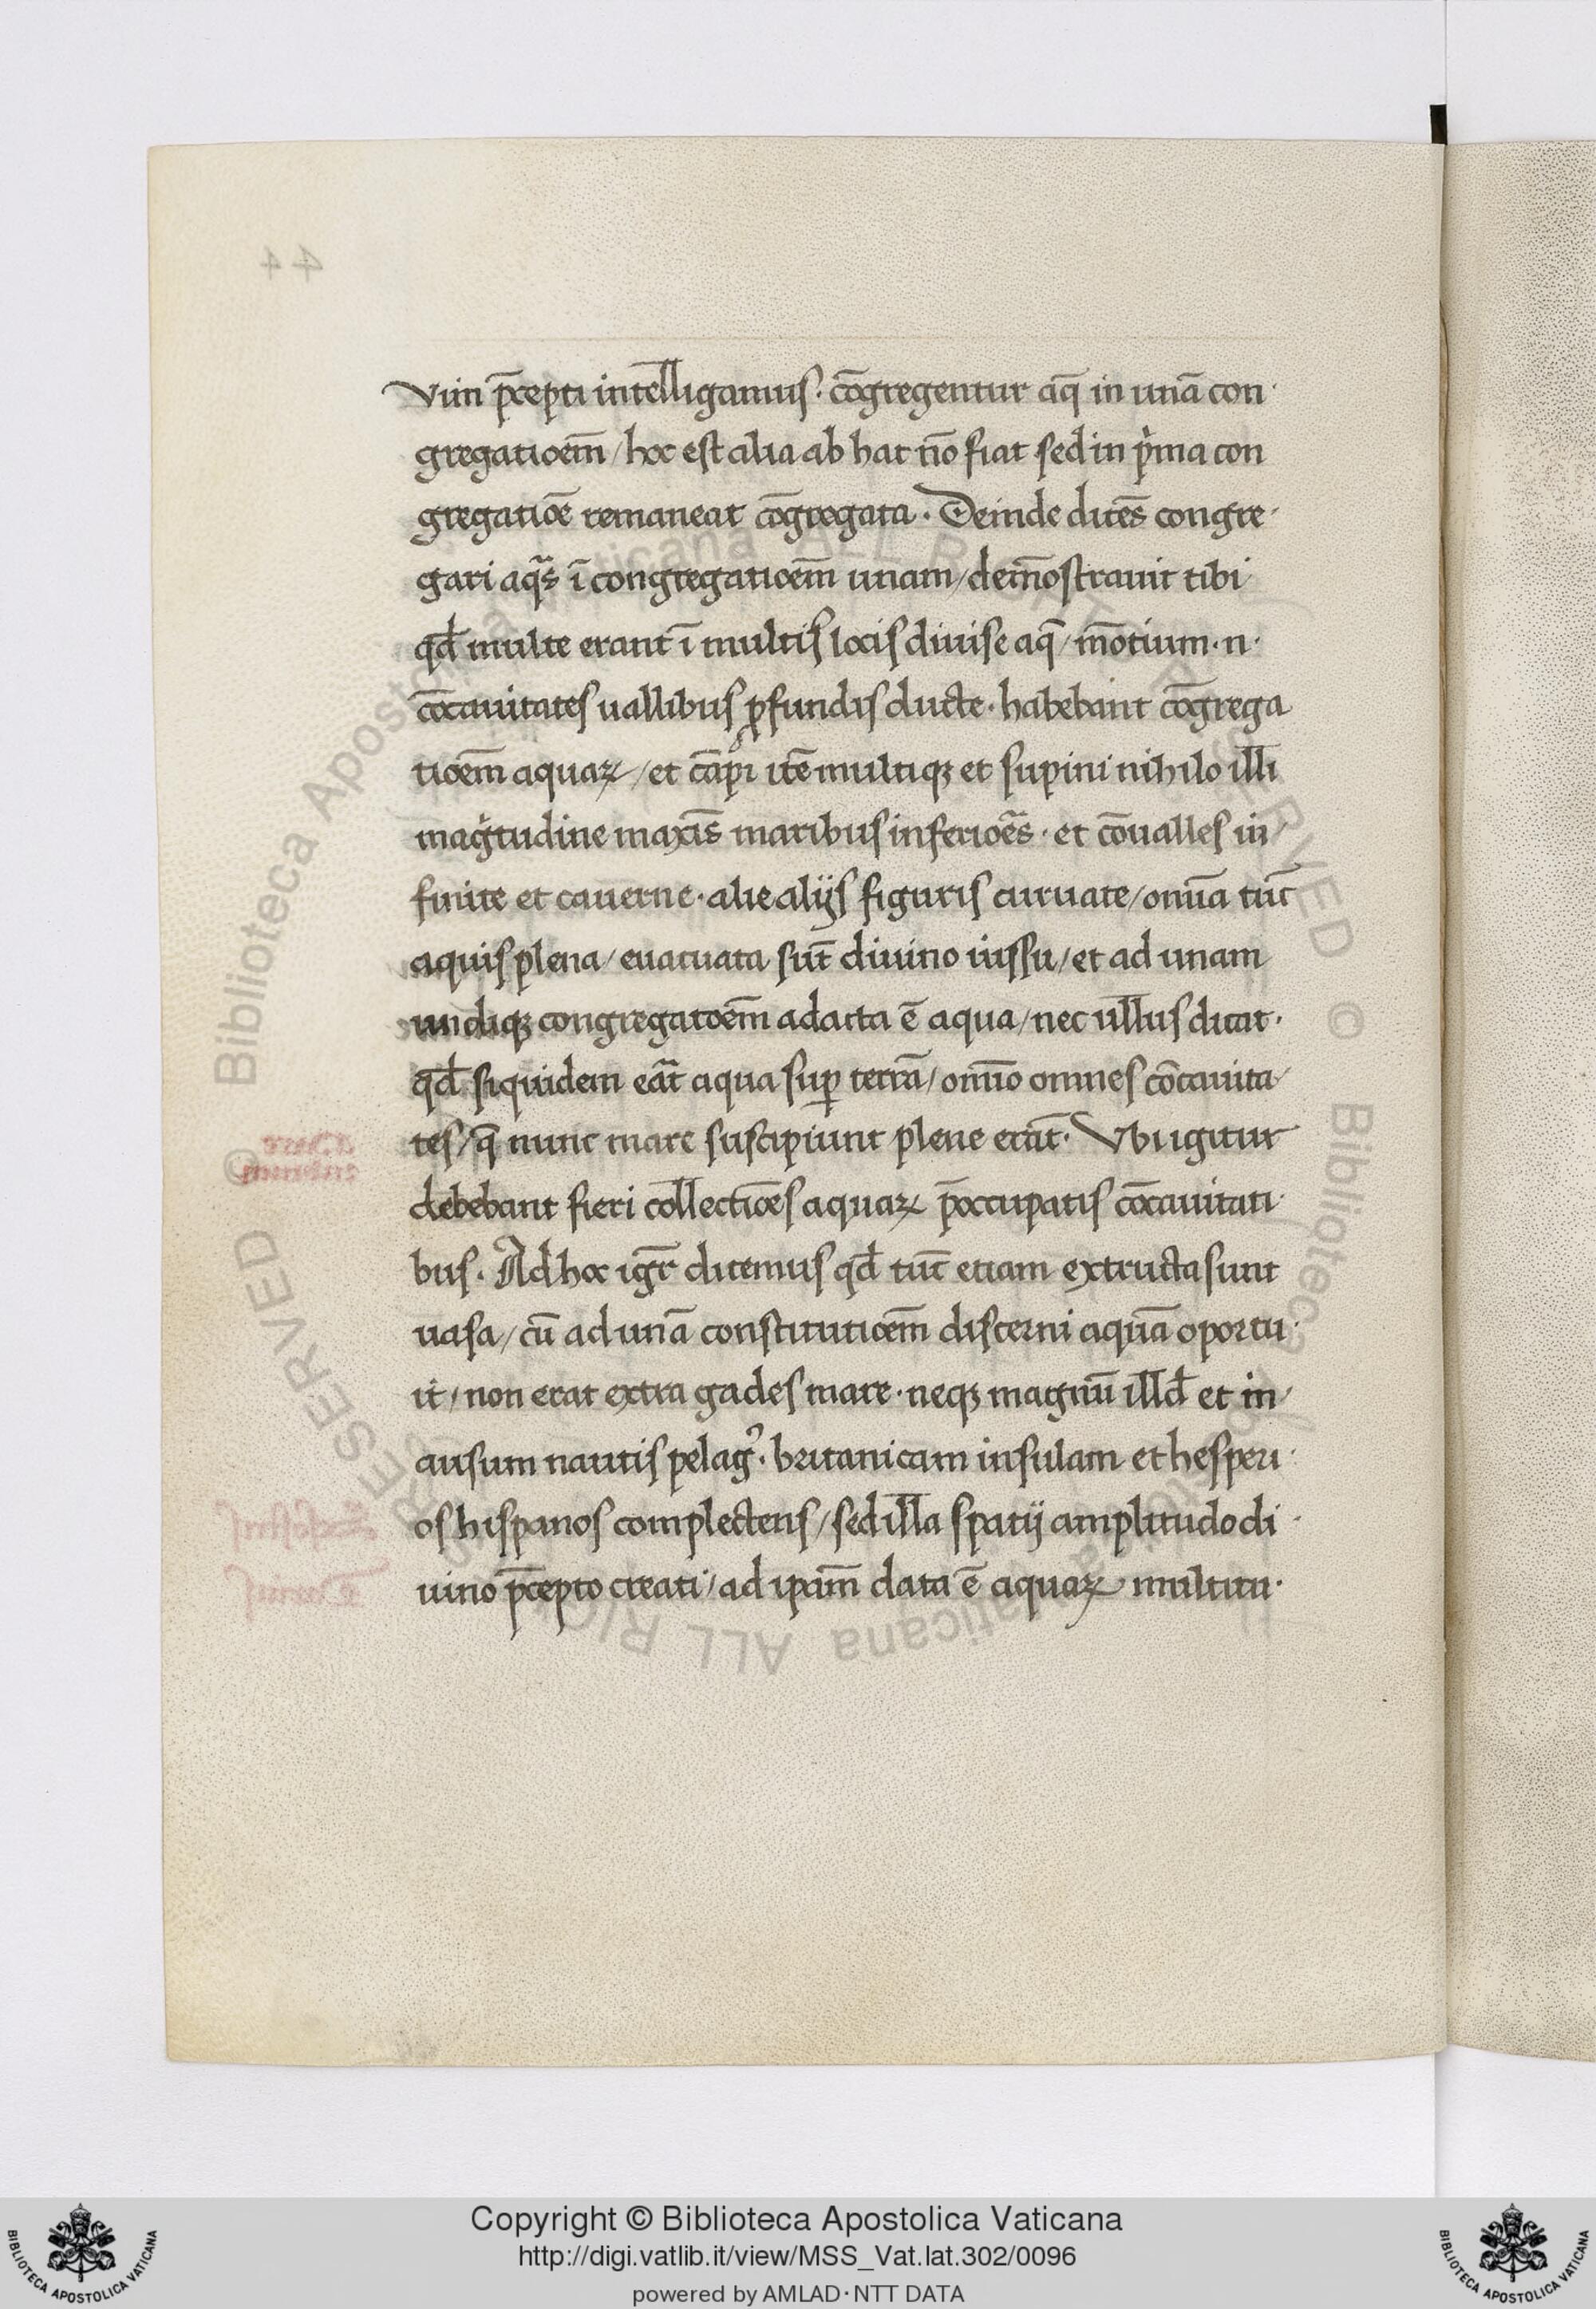 vim p̄cepti intell̄igamus. cōgregentur aq̄ in unā con
gregatioem̄ / hoc est alia ab hac nō fiat sed in pͥma con
gregatiōe remaneat cōgregata. Deinde dicēs congre
gari aqᷓs ī congregatioem̄ unam / demōstrauit tibi
qd̄ multe erant ī multis locis diuise aq̄ / mōtium .n.
cōcauitates uallibus ꝓfundis ducte. habebant cōgrega
tioem̄ aquaꝝ / et cāpi itē multiqꝫ et supini nihilo illi
magͥtudine maxīs maribus inferioēs. et cōualles in
finite et cauerne. alie alijs figuris curuate / omīa tūc
aquis plena / euacuata sūt diuino iussu / et ad unam
undiqꝫ congregatoēm adacta ē aqua / nec ullus dicat.
qd̄ siquidem eāt aqua suꝑ terrā / omīo omnes cōcauita
tes / q̄ nunc mare suscipiunt plene erāt. Vbi igitur
debebant fieri collectiōes aquaꝝ p̄occupatis cōcauitati
bus. Ad hoc igr̄ dicemus qd̄ tūc etiam extructa sunt
uasa / cū ad unā constitutioem̄ discerni aquā oportu
it / non erat extra gades mare. neqꝫ magnū illd̄ et in
ausum nautis pelagꝰ. britanicam insulam et hesperi
os hispanos complectens / sed illa spatij amplitudo di
uino p̄cepto creati / ad ip̄am data ē aquaꝝ multitu
Copyright © Biblioteca Apostolica Vaticana
http://digi.vatlib.it/view/MSS_Vat.lat.302/0096
powered by AMLAD·NTT DATA